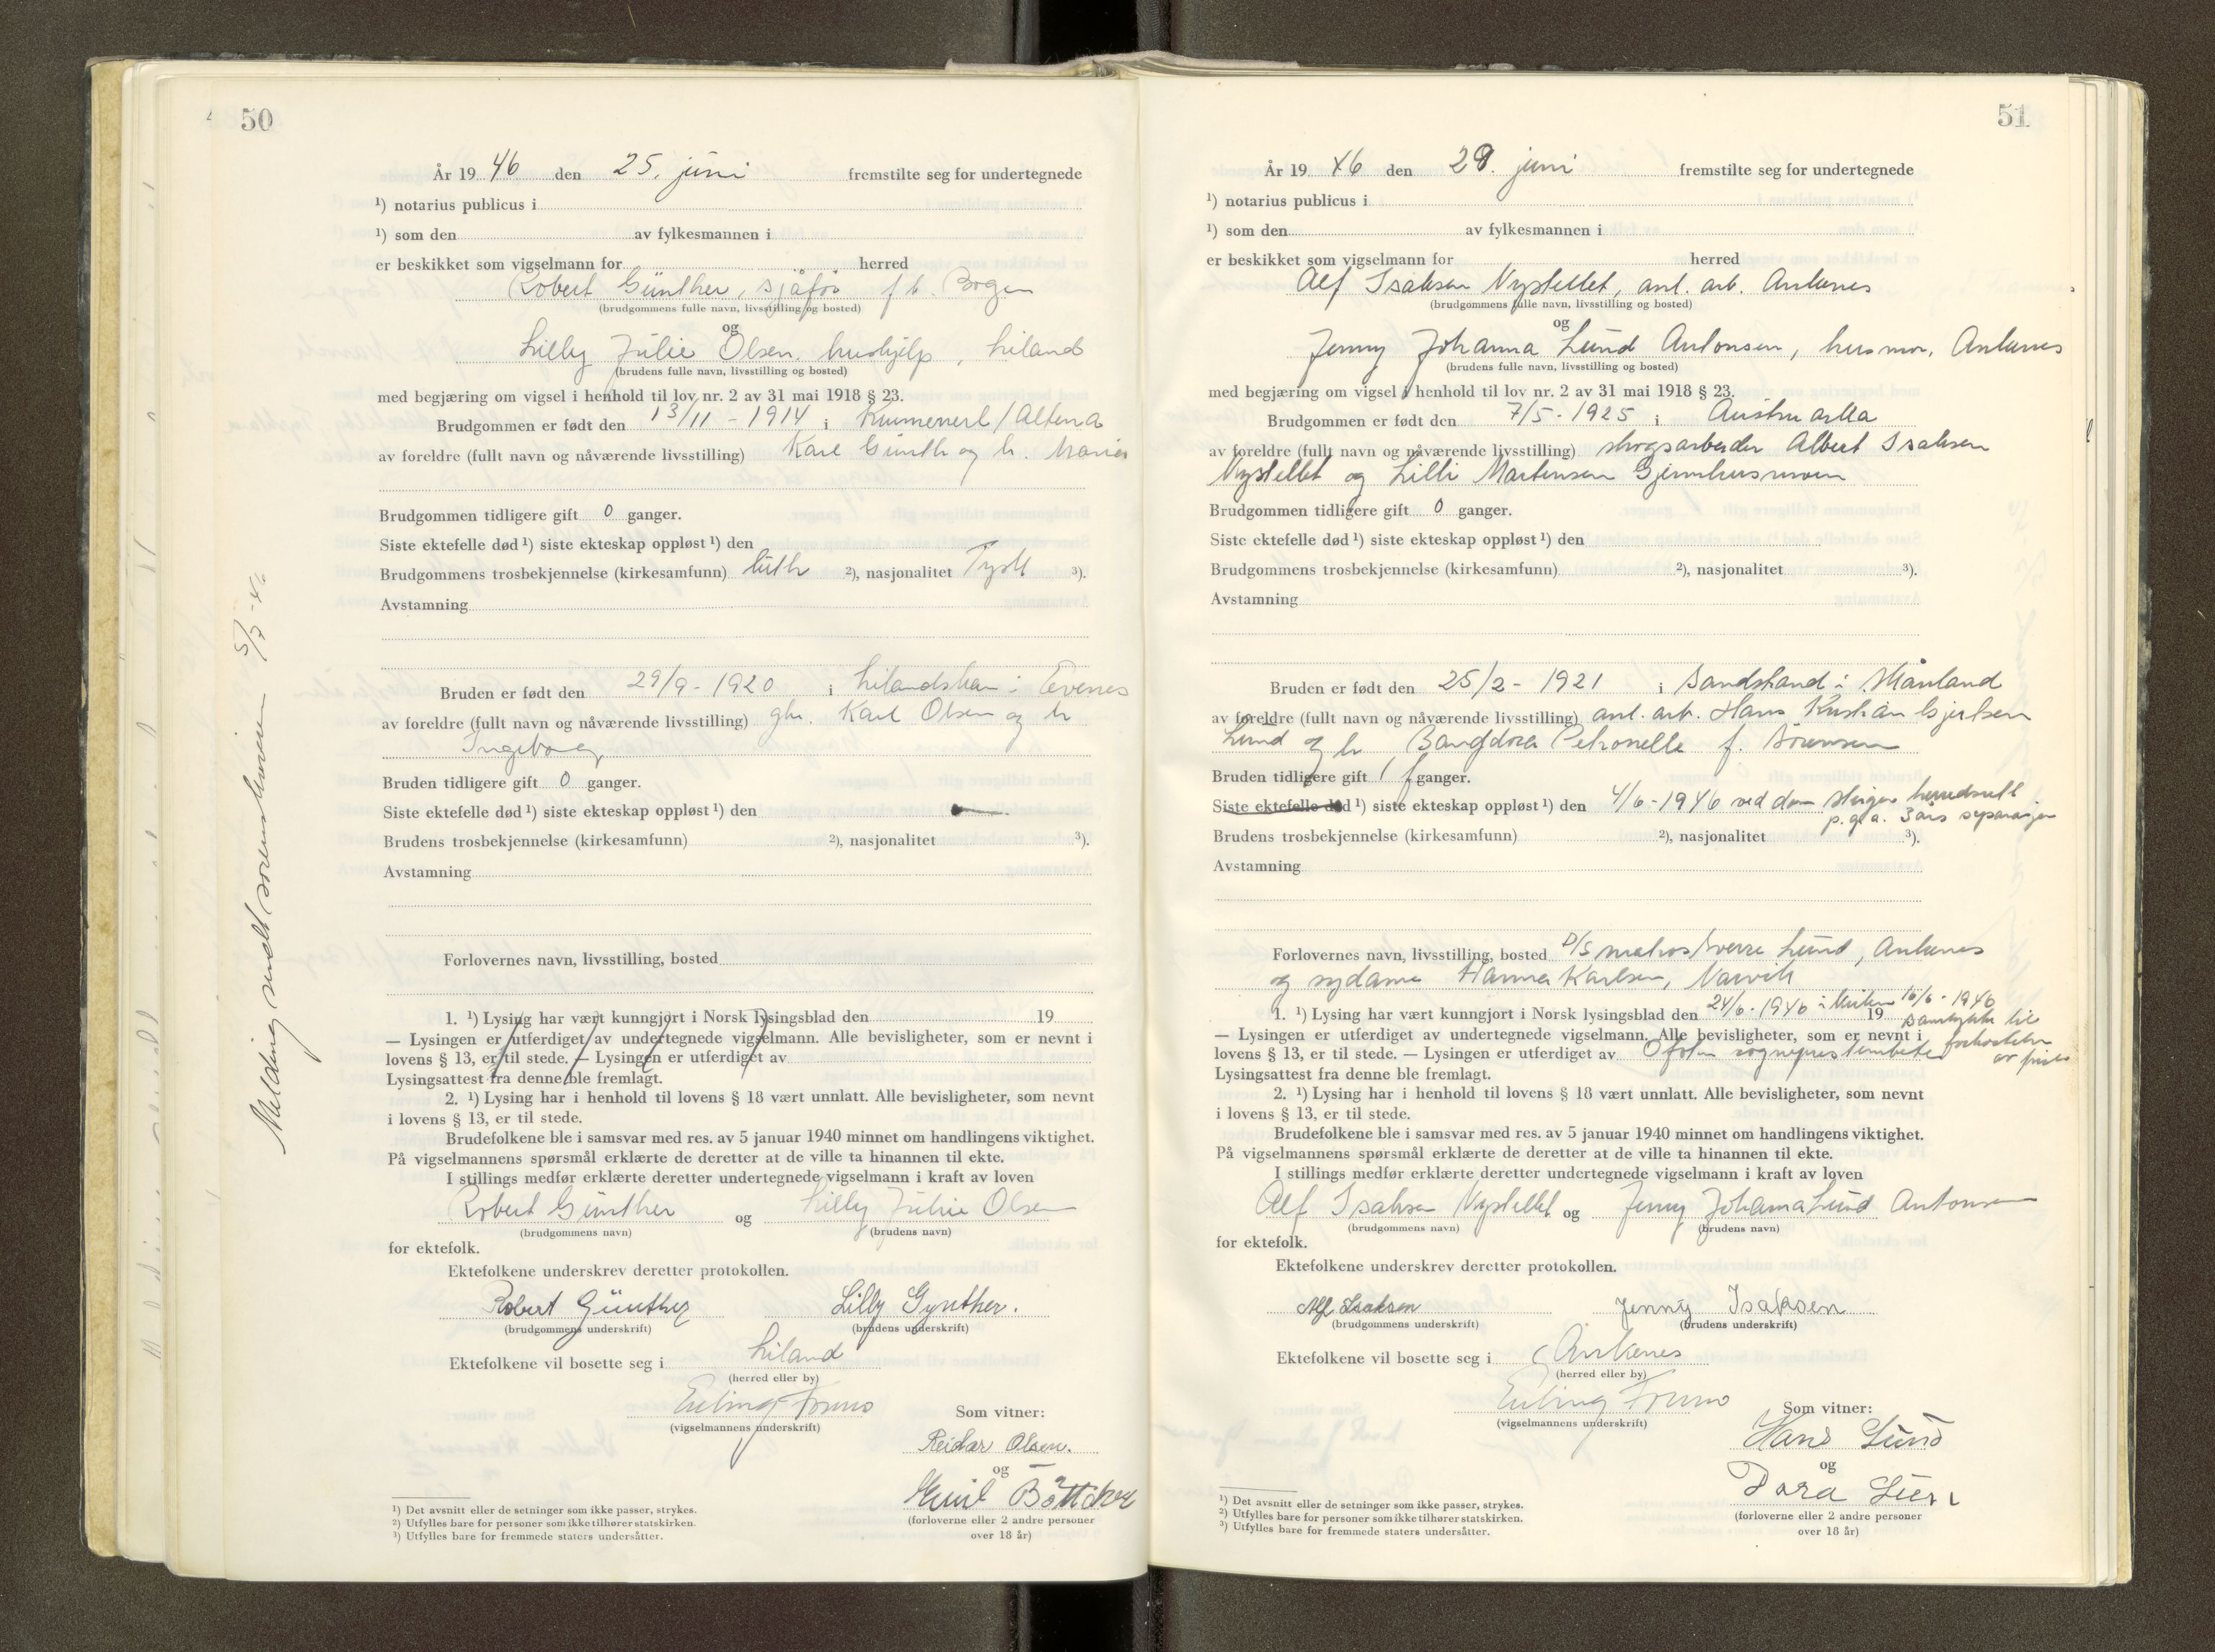 50
År 19 46 den 25. juni fremstilte seg for undertegnede
¹) notarius publicus i
¹) som den av fylkesmannen i
er beskikket som vigselmann for herred
Robert Günther, sjåfør f.t. Bogen
(brudgommens fulle navn, livsstilling og bosted)
og
Lilly Julie Olsen, hushjelp, Liland
(brudens fulle navn, livsstilling og bosted)
med begjæring om vigsel i henhold til lov nr. 2 av 31 mai 1918 § 23.
Brudgommen er født den 13/11 - 1914 i / Altena
av foreldre (fullt navn og nåværende livsstilling) Karl Günth og h. Maria
Brudgommen tidligere gift 0 ganger.
Siste ektefelle død ¹) siste ekteskap oppløst ¹) den
Brudgommens trosbekjennelse (kirkesamfunn) luth ²), nasjonalitet Tysk ³).
Avstamning
Bruden er født den 29/9 - 1920 i i Evenes
av foreldre (fullt navn og nåværende livsstilling) gbr. Karl Olsen og h
Ingeborg
Bruden tidligere gift 0 ganger.
Siste ektefelle død ¹) siste ekteskap oppløst ¹) den —
Brudens trosbekjennelse (kirkesamfunn) ²), nasjonalitet ³).
Avstamning
Forlovernes navn, livsstilling, bosted
1. ¹) Lysing har vært kunngjort i Norsk lysingsblad den 19
— Lysingen er utferdiget av undertegnede vigselmann. Alle bevisligheter, som er nevnt i
lovens § 13, er til stede. — Lysingen er utferdiget av
Lysingsattest fra denne ble fremlagt.
2. ¹) Lysing har i henhold til lovens § 18 vært unnlatt. Alle bevisligheter, som nevnt
i lovens § 13, er til stede.
Brudefolkene ble i samsvar med res. av 5 januar 1940 minnet om handlingens viktighet.
På vigselmannens spørsmål erklærte de deretter at de ville ta hinannen til ekte.
I stillings medfør erklærte deretter undertegnede vigselmann i kraft av loven
Robert Günther og Lilly Julie Olsen
(brudgommens navn) (brudens navn)
for ektefolk.
Ektefolkene underskrev deretter protokollen.
Robert Günther Lilly Gynther.
(brudgommens underskrift) (brudens underskrift)
Ektefolkene vil bosette seg i Liland
(herred eller by)
Erling
(vigselmannens underskrift)
Som vitner:
Reidar Olsen.
og
Emil Böttcher
(forloverne eller 2 andre personer
over 18 år)
¹) Det avsnitt eller de setninger som ikke passer, strykes.
²) Utfylles bare for personer som ikke tilhører statskirken.
³) Utfylles bare for fremmede staters undersåtter.
Melding sendt sorenskriveren 5/7 - 46
51
År 19 46 den 28. juni fremstilte seg for undertegnede
¹) notarius publicus i
¹) som den av fylkesmannen i
er beskikket som vigselmann for herred
Alf Isaksen Nystellet, anl. arb. Ankenes
(brudgommens fulle navn, livsstilling og bosted)
og
Jenny Johanna Lund Antonsen, husmor, Ankenes
(brudens fulle navn, livsstilling og bosted)
med begjæring om vigsel i henhold til lov nr. 2 av 31 mai 1918 § 23.
Brudgommen er født den 7/5 - 1925 i
av foreldre (fullt navn og nåværende livsstilling) skogsarbeider Albert Isaksen
Nystellet og Lilli Martensen
Brudgommen tidligere gift 0 ganger.
Siste ektefelle død ¹) siste ekteskap oppløst ¹) den
Brudgommens trosbekjennelse (kirkesamfunn) ²), nasjonalitet ³).
Avstamning
Bruden er født den 25/2 - 1921 i Sandstrand i Skånland
av foreldre (fullt navn og nåværende livsstilling) anl. arb. Hans Kristian
Lund og h Petronelle f. Sørensen
Bruden tidligere gift 1 ganger.
Siste ektefelle død ¹) siste ekteskap oppløst ¹) den 4/6 - 1946 ved dom herredsrett
p.g.a. 3 års separasjon
Brudens trosbekjennelse (kirkesamfunn) ²), nasjonalitet ³).
Avstamning
Forlovernes navn, livsstilling, bosted D/S matros Sverre Lund, Ankenes
og sydame Hanna Karlsen, Narvik
1. ¹) Lysing har vært kunngjort i Norsk lysingsblad den 24/6 - 1946 i kirken 16/6 - 1946
19 samtykke til
— Lysingen er utferdiget av undertegnede vigselmann. Alle bevisligheter, som er nevnt i
forkortelse
lovens § 13, er til stede. — Lysingen er utferdiget av Ofoten sogneprestembete
av
Lysingsattest fra denne ble fremlagt.
2. ¹) Lysing har i henhold til lovens § 18 vært unnlatt. Alle bevisligheter, som nevnt
i lovens § 13, er til stede.
Brudefolkene ble i samsvar med res. av 5 januar 1940 minnet om handlingens viktighet.
På vigselmannens spørsmål erklærte de deretter at de ville ta hinannen til ekte.
I stillings medfør erklærte deretter undertegnede vigselmann i kraft av loven
Alf Isaksen Nystellet og Jenny Johanna Lund Antonsen
(brudgommens navn) (brudens navn)
for ektefolk.
Ektefolkene underskrev deretter protokollen.
Alf Isaksen Jenny Isaksen
(brudgommens underskrift) (brudens underskrift)
Ektefolkene vil bosette seg i Ankenes
(herred eller by)
Erling
(vigselmannens underskrift)
Som vitner:
Hans Lund
og
Dora Lund
(forloverne eller 2 andre personer
over 18 år)
¹) Det avsnitt eller de setninger som ikke passer, strykes.
²) Utfylles bare for personer som ikke tilhører statskirken.
³) Utfylles bare for fremmede staters undersåtter.